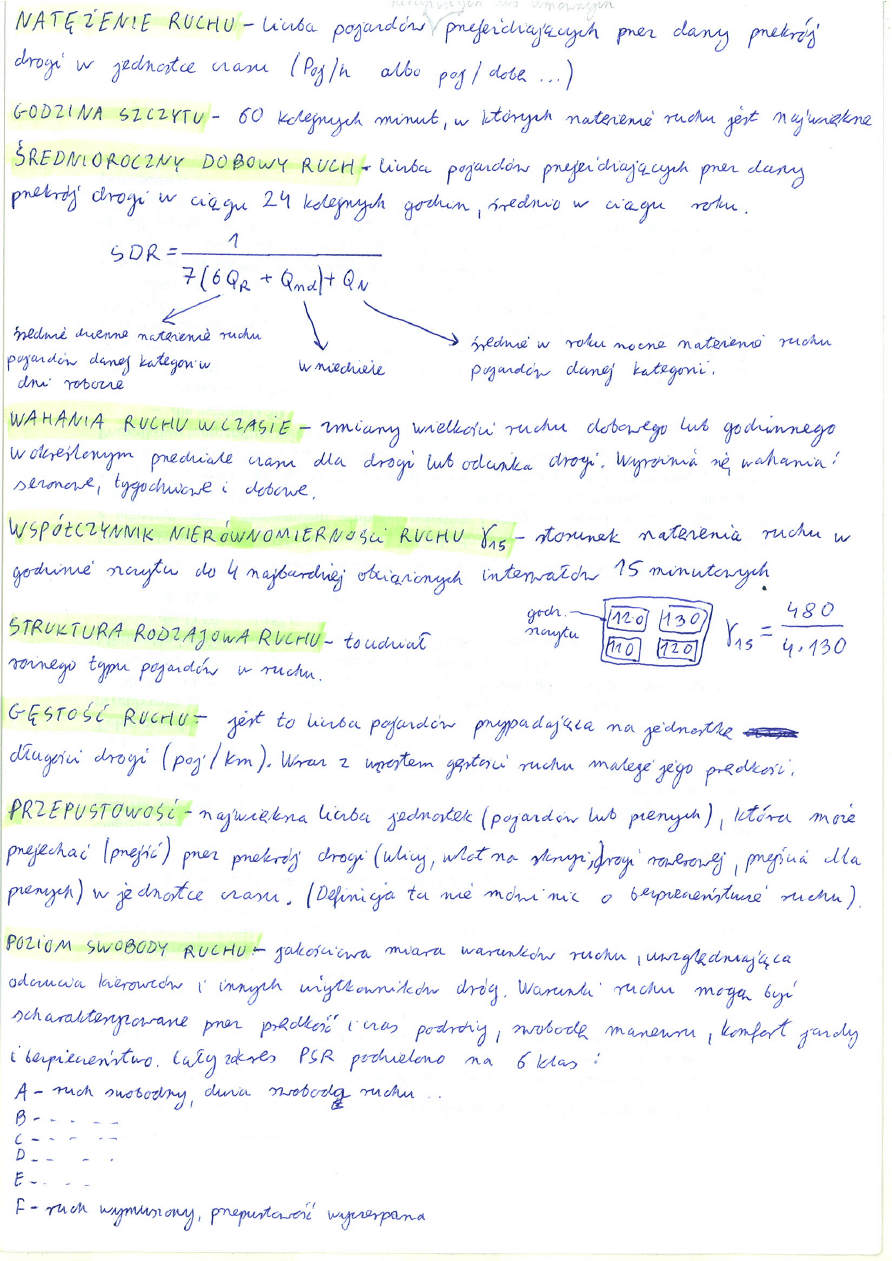 NATĘŻENIE RUCHU - liczba pojazdów przejeżdżających przez dany przekrój
drogi w jednostce czasu (Poj/h albo poj/dobę ...)
GODZINA SZCZYTU - 60 kolejnych minut, w których natężenie ruchu jest największe
ŚREDNIOROCZNY DOBOWY RUCH - liczba pojazdów przejeżdżających przez dany
przekrój drogi w ciągu 24 kolejnych godzin, średnio w ciągu roku.
SDR = 1 / 7(6QR + Qnd) + QN
średnie dzienne natężenie ruchu
pojazdów danej kategorii w
dni robocze
w niedziele
średnie w roku nocne natężenie ruchu
pojazdów danej kategorii.
WAHANIA RUCHU W CZASIE - zmiany wielkości ruchu dobowego lub godzinnego
w określonym przedziale czasu dla drogi lub odcinka drogi. Wyróżnia się wahania:
sezonowe, tygodniowe i dobowe.
WSPÓŁCZYNNIK NIERÓWNOMIERNOŚCI RUCHU γ15 - stosunek natężenia ruchu w
godzinie szczytu do 4 najbardziej obciążonych interwałów 15 minutowych.
godz. szczytu
120 130
110 120
γ15 = 480 / 4·130
STRUKTURA RODZAJOWA RUCHU - to udział
różnego typu pojazdów w ruchu.
GĘSTOŚĆ RUCHU - jest to liczba pojazdów przypadająca na jednostkę
długości drogi (poj/km). Wraz z wzrostem gęstości ruchu maleje jego prędkość.
PRZEPUSTOWOŚĆ - największa liczba jednostek (pojazdów lub pieszych), która może
przejechać (przejść) przez przekrój drogi (ulicy, wlot na skrzyż, drogi rowerowej, przejścia dla
pieszych) w jednostce czasu. (Definicja ta nie mówi nic o bezpieczeństwie ruchu).
POZIOM SWOBODY RUCHU - jakościowa miara warunków ruchu, uwzględniająca
odczucia kierowców i innych użytkowników dróg. Warunki ruchu mogą być
scharakteryzowane przez prędkość i czas podróży, swobodę manewru, komfort jazdy
i bezpieczeństwo. Cały zakres PSR podzielono na 6 klas:
A - ruch swobodny, duża swoboda ruchu ..
B - - - - -
C - - - - -
D - - - .
E - . - -
F - ruch wymuszony, przepustowość wyczerpana